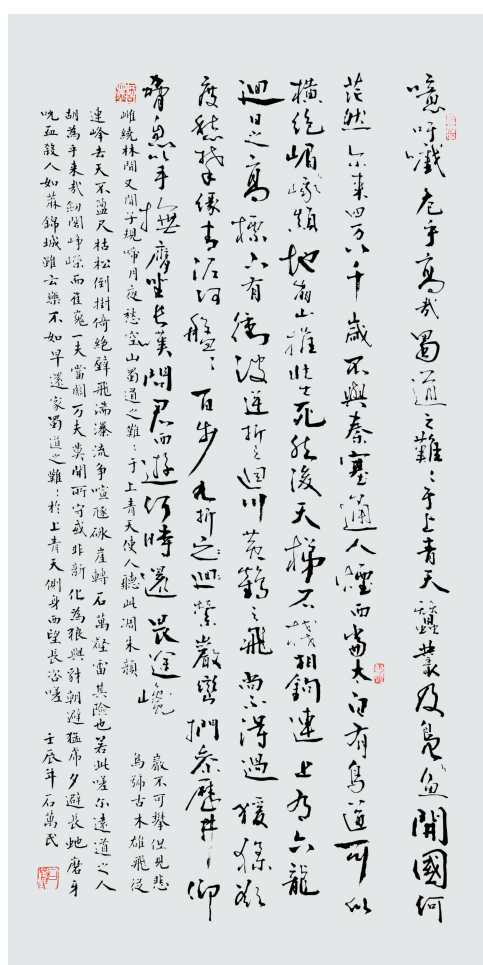 噫吁巇危乎高哉蜀道之難〻于上青天蠶叢及魚鳧開國何
茫然尔来四万八千歲不與秦塞通人煙西當太白有鳥道可以
橫绝峨嵋巔地崩山摧壯士死然後天梯石棧相鉤連上有六龍
迴日之高標下有衝波逆折之迴川黃鶴之飛尚不得過猨猱欲
度愁攀緣青泥何盤〻百步九折迴縈巖巒捫參歷井仰
脅息以手撫膺坐長嘆問君西遊何時還畏途巉
巖不可攀但見悲
鳥號古木雄飛從
雌繞林間又聞子規啼月夜愁空山蜀道之難〻于上青天使人聽此凋朱顏
連峰去天不盈尺枯松倒掛倚絕壁飛湍瀑流爭喧豗砯崖轉石萬壑雷其險也若此嗟尔遠道之人
胡為乎来哉劍閣崢嶸而崔嵬一夫當關万夫莫開所守或非親化為狼與豺朝避猛虎夕避長虵磨牙
吮血殺人如麻錦城雖云樂不如早還家蜀道之難〻於上青天側身西望長咨嗟 壬辰年石萬民